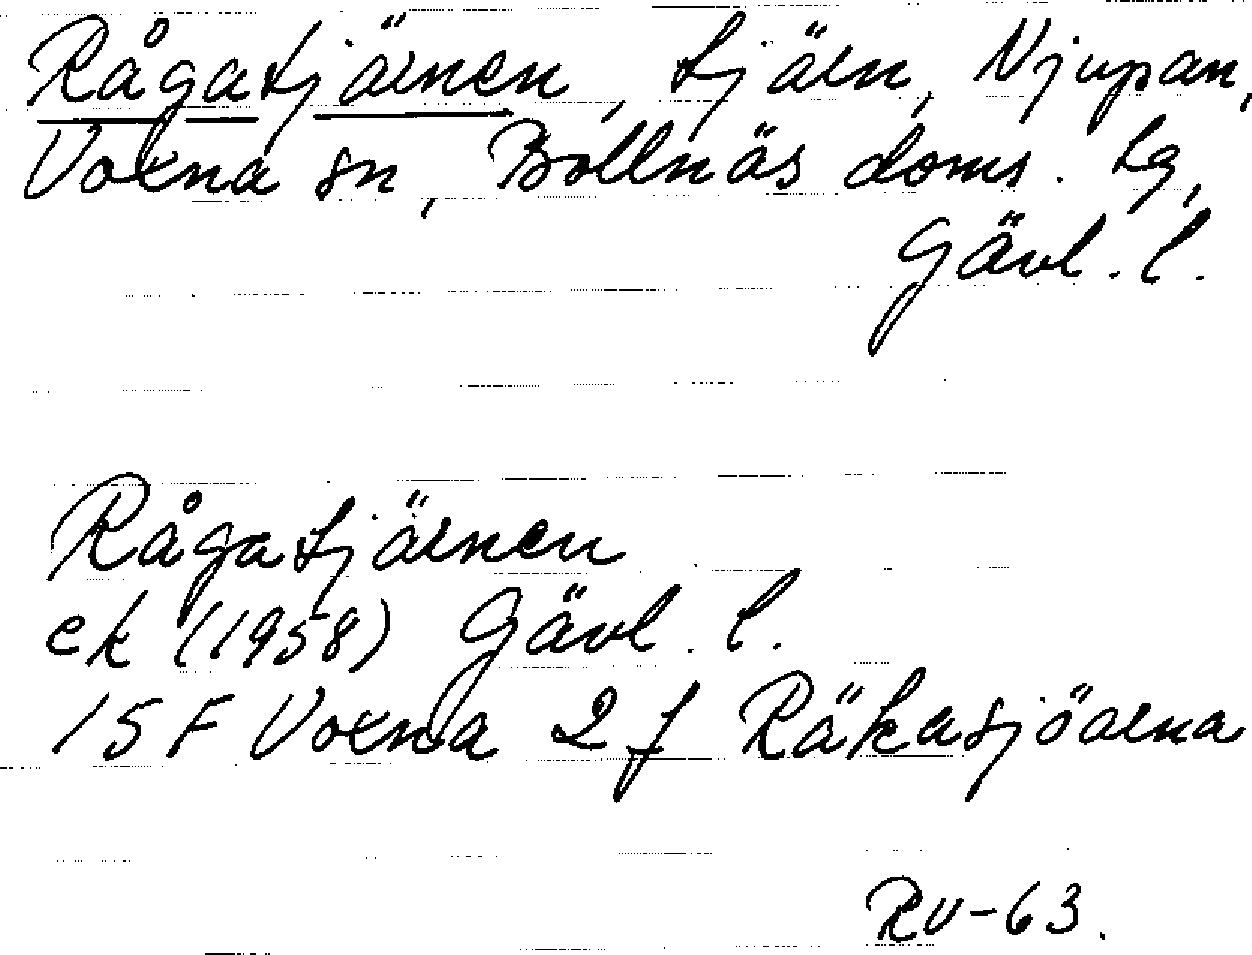 Rågatjärnen, tjärn, Njupan,
Voxna sn, Bollnäs doms. tg,
Gävl. l.
Rågatjärnen
ek (1958) Gävl. l.
15 F Voxna 2 f Räkasjöarna
RV-63.